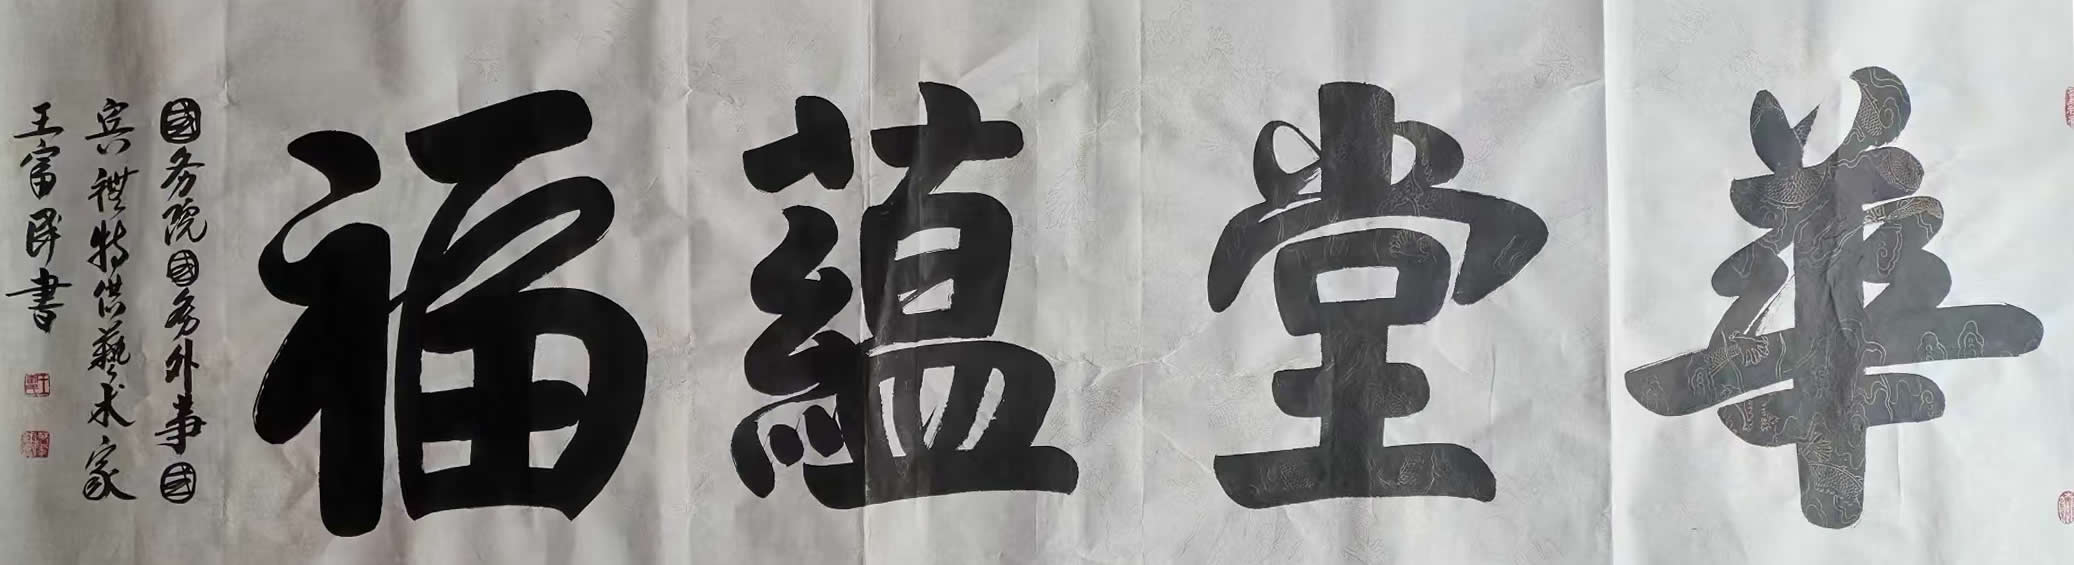 華堂蘊福
國务院國务外事國
宾禮特供藝术家
王富民書